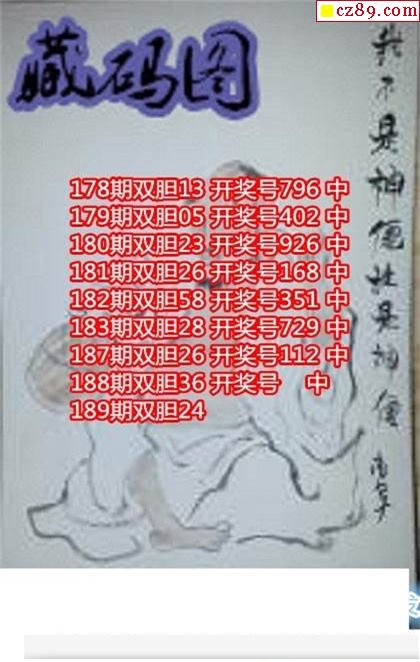 cz89.com
藏码图
178期双胆13 开奖号796 中
179期双胆05 开奖号402 中
180期双胆23 开奖号926 中
181期双胆26 开奖号168 中
182期双胆58 开奖号351 中
183期双胆28 开奖号729 中
187期双胆26 开奖号112 中
188期双胆36 开奖号 中
189期双胆24
我不是神僊
是神僊